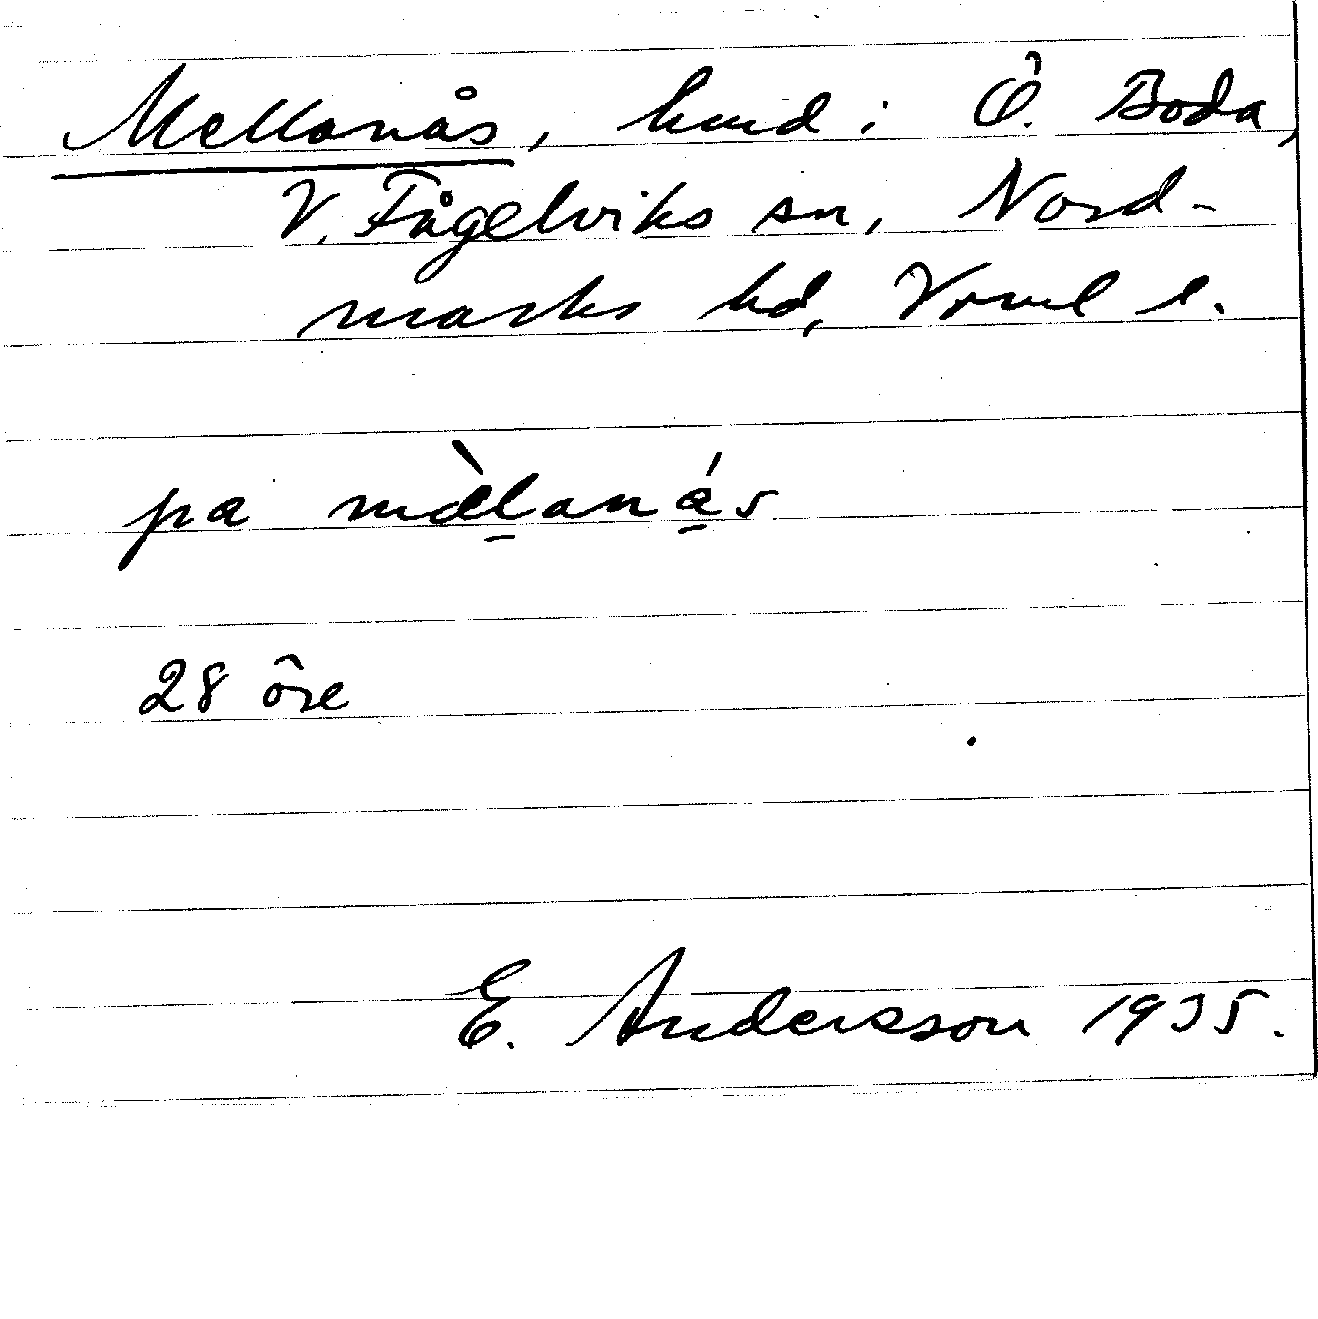 Mellanås, hmd i Ö. Boda,
V. Fågelviks sn, Nord-
marks hd, Vrml l.
pa mæ̀lanás
28 öre
E. Andersson 1935.